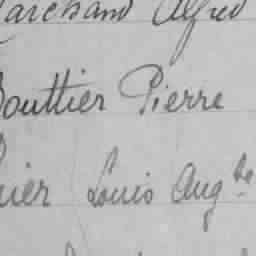 Marchand Alfred
Bouttier Pierre
uier Louis Aug.te